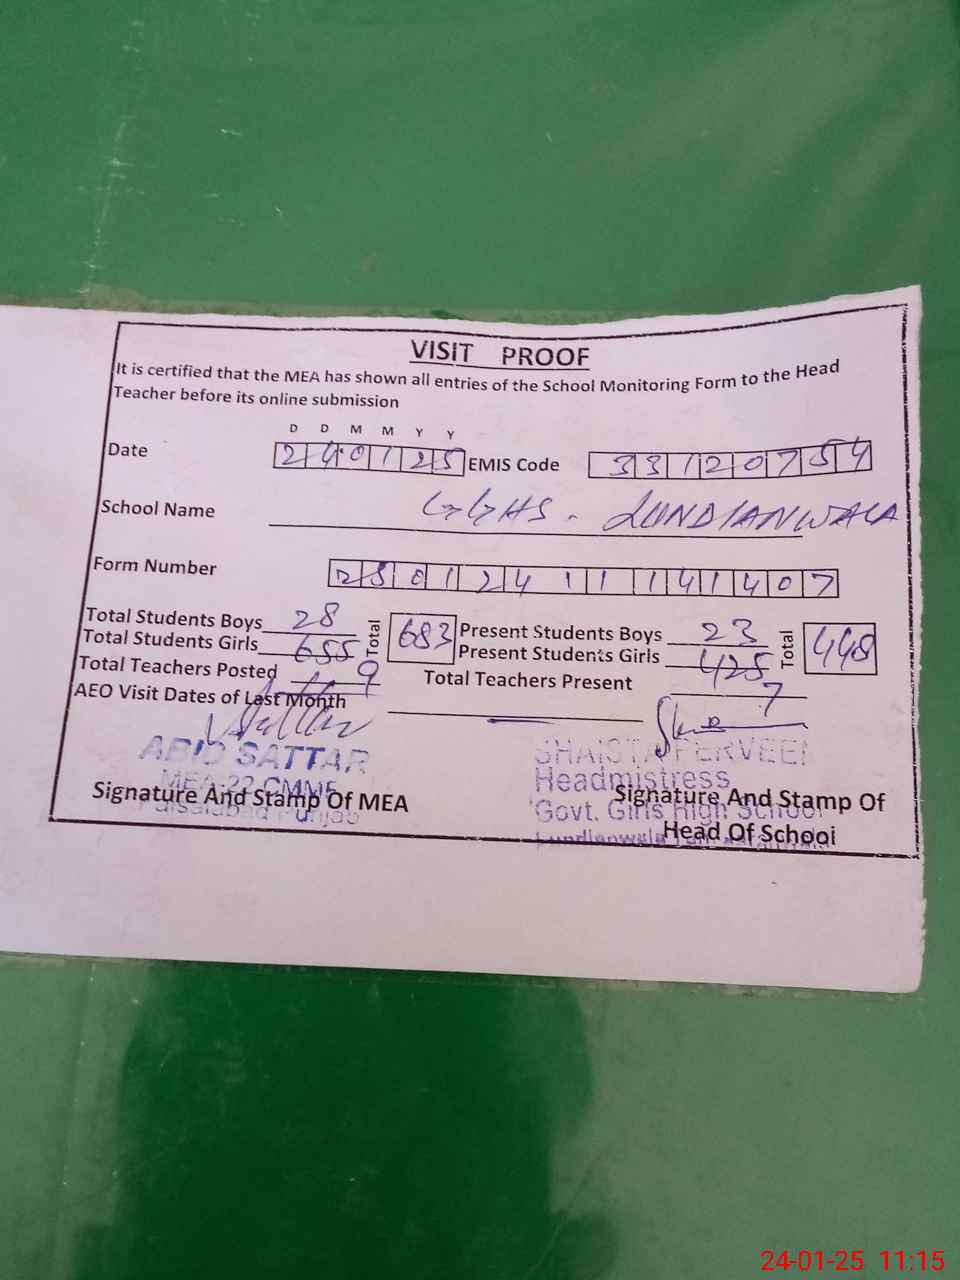 VISIT PROOF
It is certified that the MEA has shown all entries of the School Monitoring Form to the Head
Teacher before its online submission
D D M M Y Y
Date 240125 EMIS Code 33120754
School Name GGHS. LUNDIANWALA
Form Number
Total Students Boys 28 Total 683 Present Students Boys 23 Total 448
Total Students Girls 655 Present Students Girls 425
Total Teachers Posted 9 Total Teachers Present 7
AEO Visit Dates of Last Month
ABID SATTAR
MEA-22 CMMF
Faisalabad Punjab
Signature And Stamp Of MEA
SHAISTA PERVEEN
Headmistress
Govt. Girls High School
Lundianwala
Signature And Stamp Of
Head Of School
24-01-25 11:15